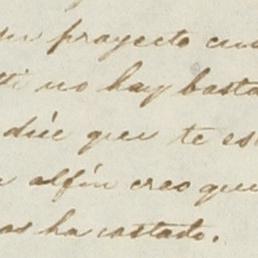 un proyecto cu
no hay basta
dúc que te es
alfin creo que
as ha costado.